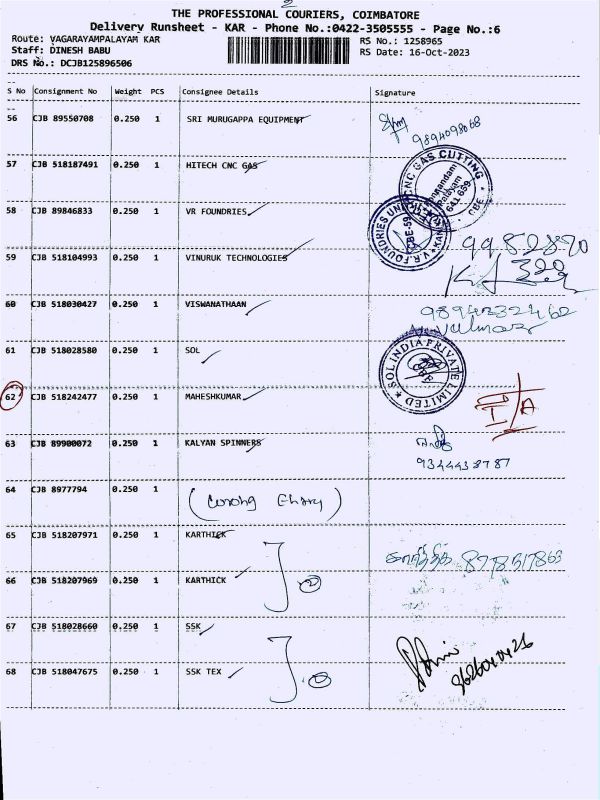 2
THE PROFESSIONAL COURIERS, COIMBATORE
Delivery Runsheet - KAR - Phone No.:0422-3505555 - Page No.:6
Route: VAGARAYAMPALAYAM KAR
RS No.: 1258965
Staff: DINESH BABU
RS Date: 16-Oct-2023
DRS No.: DCJB125896506
S No Consignment No Weight PCS Consignee Details Signature
56 CJB 89550708 0.250 1 SRI MURUGAPPA EQUIPMENT
9894098068
57 CJB 518187491 0.250 1 HITECH CNC GAS
CNC GAS CUTTING
641 659
CBE
58 CJB 89846833 0.250 1 VR FOUNDRIES
V.R.FOUNDRIES UNIT
KAN
CBE-59
59 CJB 518104993 0.250 1 VINURUK TECHNOLOGIES
9952890
320
60 CJB 518030427 0.250 1 VISWANATHAAN
61 CJB 518028580 0.250 1 SOL
SOL INDIA PRIVATE LIMITED
62 CJB 518242477 0.250 1 MAHESHKUMAR
I/A
63 CJB 89900072 0.250 1 KALYAN SPINNERS
9344438787
64 CJB 8977794 0.250 1 (wrong Entry)
65 CJB 518207971 0.250 1 KARTHICK
கார்த்திக்
66 CJB 518207969 0.250 1 KARTHICK
2
67 CJB 518028660 0.250 1 SSK
68 CJB 518047675 0.250 1 SSK TEX
2